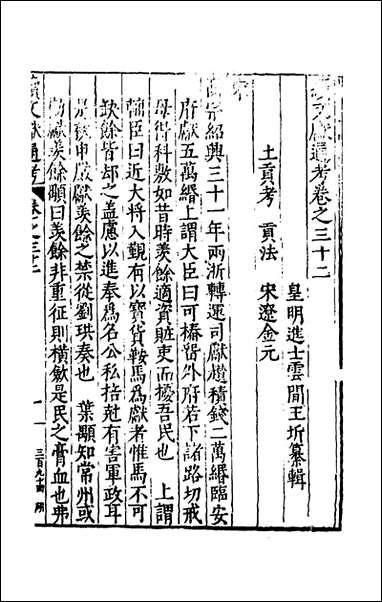 續文獻通考卷之三十二
皇明進士雲間王圻纂輯
土貢考 貢法 宋遼金元
宋
高宗紹興三十一年兩浙轉運司獻趲積錢二萬緡臨安
府獻五萬緡上謂大臣曰可樁留外府若下諸路切戒
毋得科敷如昔時羨餘適資賍吏而擾吾民也 上謂
輔臣曰近大將入覲有以寳貨鞍馬為獻者惟馬不可
缺餘皆却之盖慮以進奉為名公私掊尅有害軍政耳
是秋申嚴獻羨餘之禁從劉珙奏也 葉顒知常州或
勸獻羨餘顒曰羨餘非重征則橫斂是民之膏血也弗
續文獻通考 卷之三十二 一 三百九十